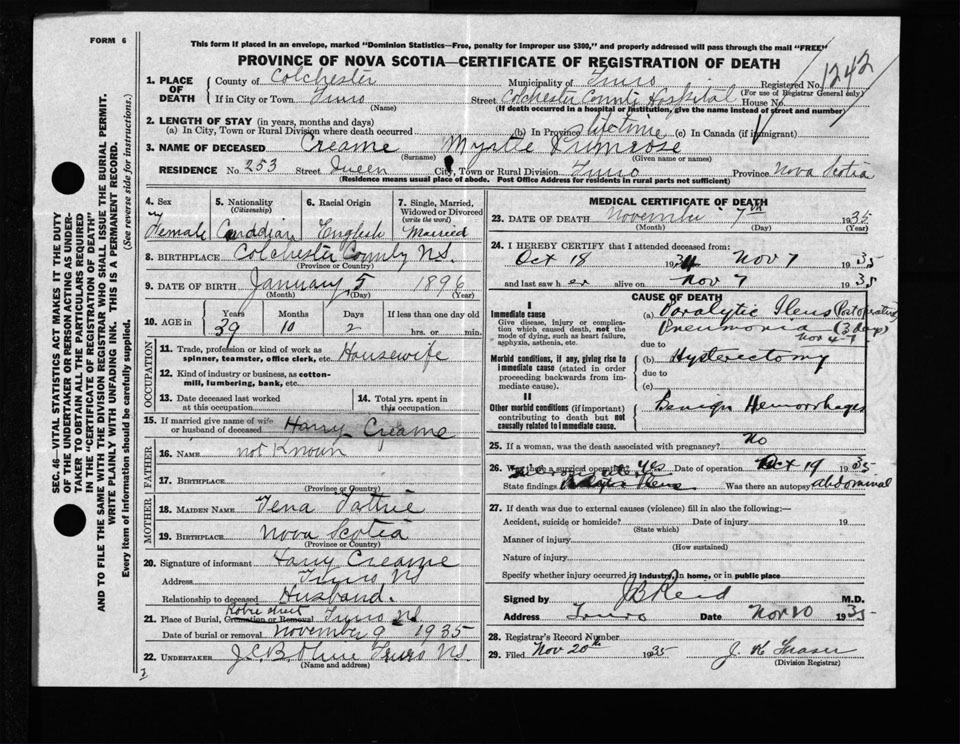 FORM 6
This form if placed in an envelope, marked "Dominion Statistics—Free, penalty for improper use $300," and properly addressed will pass through the mail "FREE"
PROVINCE OF NOVA SCOTIA—CERTIFICATE OF REGISTRATION OF DEATH
1. PLACE OF DEATH County of Colchester Municipality of Truro Registered No. 1242
(For use of Registrar General only)
If in City or Town Truro Street Colchester County Hospital House No.
(Name) (If death occurred in a hospital or institution, give the name instead of street and number)
2. LENGTH OF STAY (in years, months and days)
(a) In City, Town or Rural Division where death occurred (b) In Province lifetime (c) In Canada (if immigrant)
3. NAME OF DECEASED Creame Myrtle Primrose
(Surname) (Given name or names)
RESIDENCE No. 253 Street Queen City, Town or Rural Division Truro Province Nova Scotia
(Residence means usual place of abode. Post Office Address for residents in rural parts not sufficient)
4. Sex Female
5. Nationality (Citizenship) Canadian
6. Racial Origin English
7. Single, Married, Widowed or Divorced (write the word) Married
8. BIRTHPLACE Colchester County N.S.
(Province or Country)
9. DATE OF BIRTH January 5 1896
(Month) (Day) (Year)
10. AGE in Years 39 Months 10 Days 2 If less than one day
hrs. or min.
OCCUPATION
11. Trade, profession or kind of work as spinner, teamster, office clerk, etc. Housewife
12. Kind of industry or business, as cotton-mill, lumbering, bank, etc.
13. Date deceased last worked at this occupation
14. Total yrs. spent in this occupation
15. If married give name of wife or husband of deceased Harry Creame
FATHER
16. NAME not Known
17. BIRTHPLACE
(Province or Country)
MOTHER
18. MAIDEN NAME Tena Tattrie
19. BIRTHPLACE Nova Scotia
(Province or Country)
20. Signature of informant Harry Creame
Address Truro NS
Relationship to deceased Husband.
21. Place of Burial, Cremation or Removal Robie street Truro NS
Date of burial or removal November 9 1935
22. UNDERTAKER J.C.B. Olive Truro N.S.
(Name and address)
MEDICAL CERTIFICATE OF DEATH
23. DATE OF DEATH November 7th 1935
(Month) (Day) (Year)
24. I HEREBY CERTIFY that I attended deceased from:
Oct 18 193 Nov 7 1935
and last saw her alive on Nov 7 1935
CAUSE OF DEATH
I
Immediate cause
Give disease, injury or complication which caused death, not the mode of dying, such as heart failure, asphyxia, asthenia, etc.
(a) Paralytic Ileus (Post operative)
Pneumonia (3 days)
Nov 4-7
due to
Morbid conditions, if any, giving rise to immediate cause (stated in order proceeding backwards from immediate cause).
(b) Hysterectomy
due to
(c)
II
Other morbid conditions (if important) contributing to death but not causally related to immediate cause.
Benign Hemorrhages
25. If a woman, was the death associated with pregnancy? No
26. Was there a surgical operation? Yes Date of operation Oct 19 1935
State findings Ileus Was there an autopsy abdominal
27. If death was due to external causes (violence) fill in also the following:—
Accident, suicide or homicide? Date of injury 19
(State which)
Manner of injury
(How sustained)
Nature of injury
Specify whether injury occurred in industry, in home, or in public place
Signed by J B Reid M.D.
Address Truro Date Nov 20 1935
28. Registrar's Record Number
29. Filed Nov 20th 1935 J. K. Fraser
(Division Registrar)
SEC. 46—VITAL STATISTICS ACT MAKES IT THE DUTY
OF THE UNDERTAKER OR PERSON ACTING AS UNDER-
TAKER TO OBTAIN ALL THE PARTICULARS REQUIRED
IN THE "CERTIFICATE OF REGISTRATION OF DEATH"
AND TO FILE THE SAME WITH THE DIVISION REGISTRAR WHO SHALL ISSUE THE BURIAL PERMIT.
WRITE PLAINLY WITH UNFADING INK. THIS IS A PERMANENT RECORD.
Every item of information should be carefully supplied. (See reverse side for instructions.)